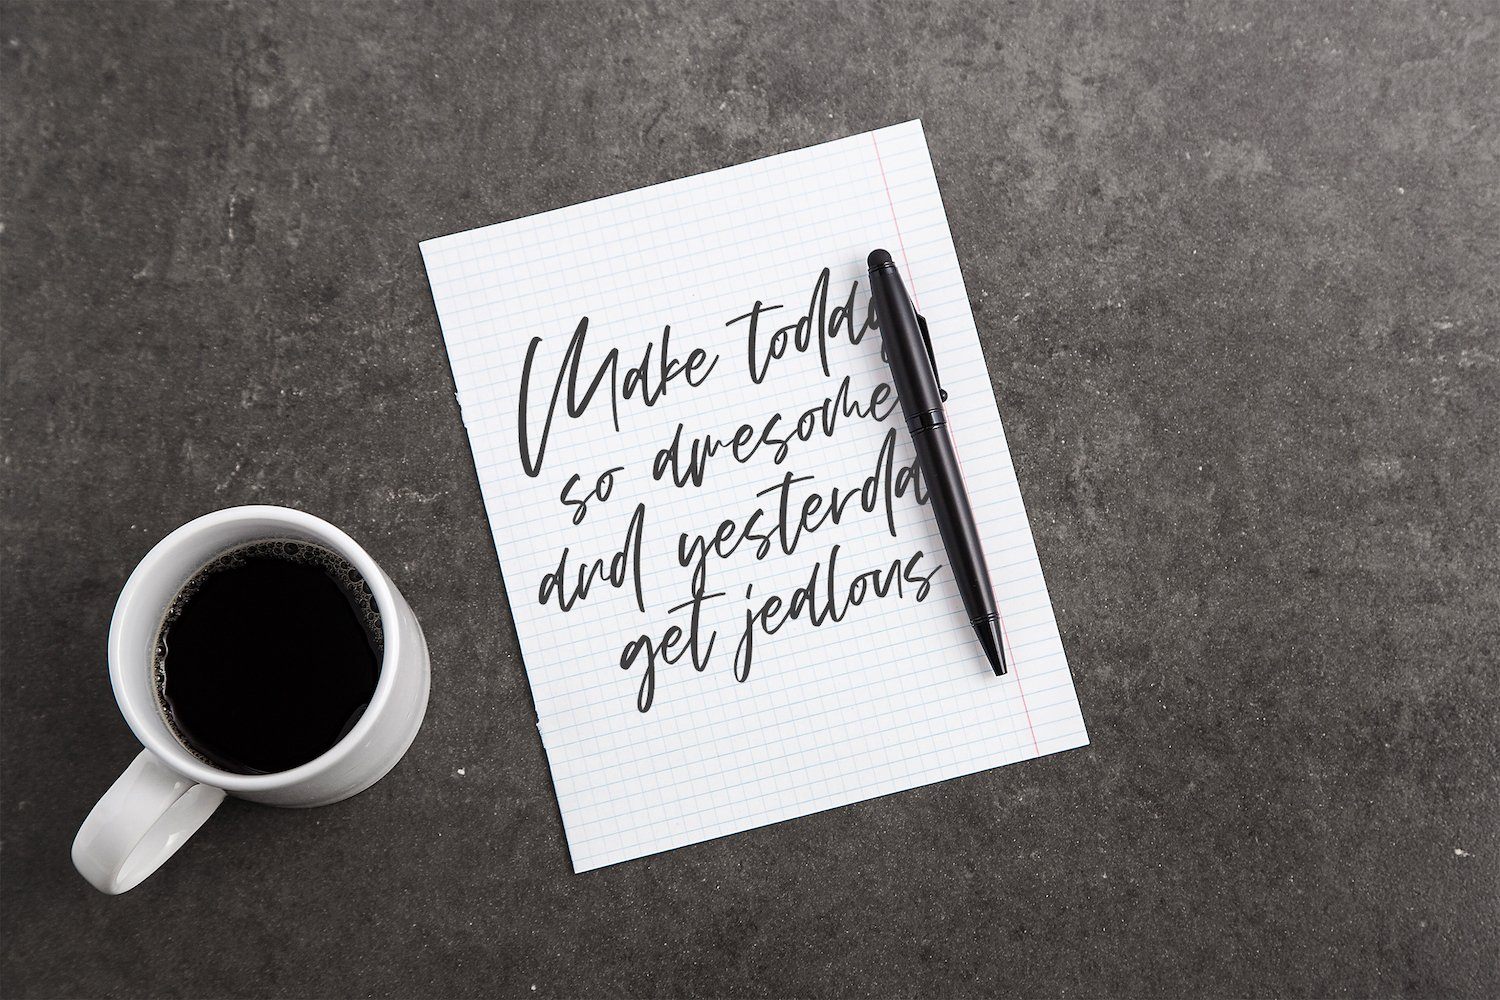 Make today
so awesome
and yesterda
get jealous